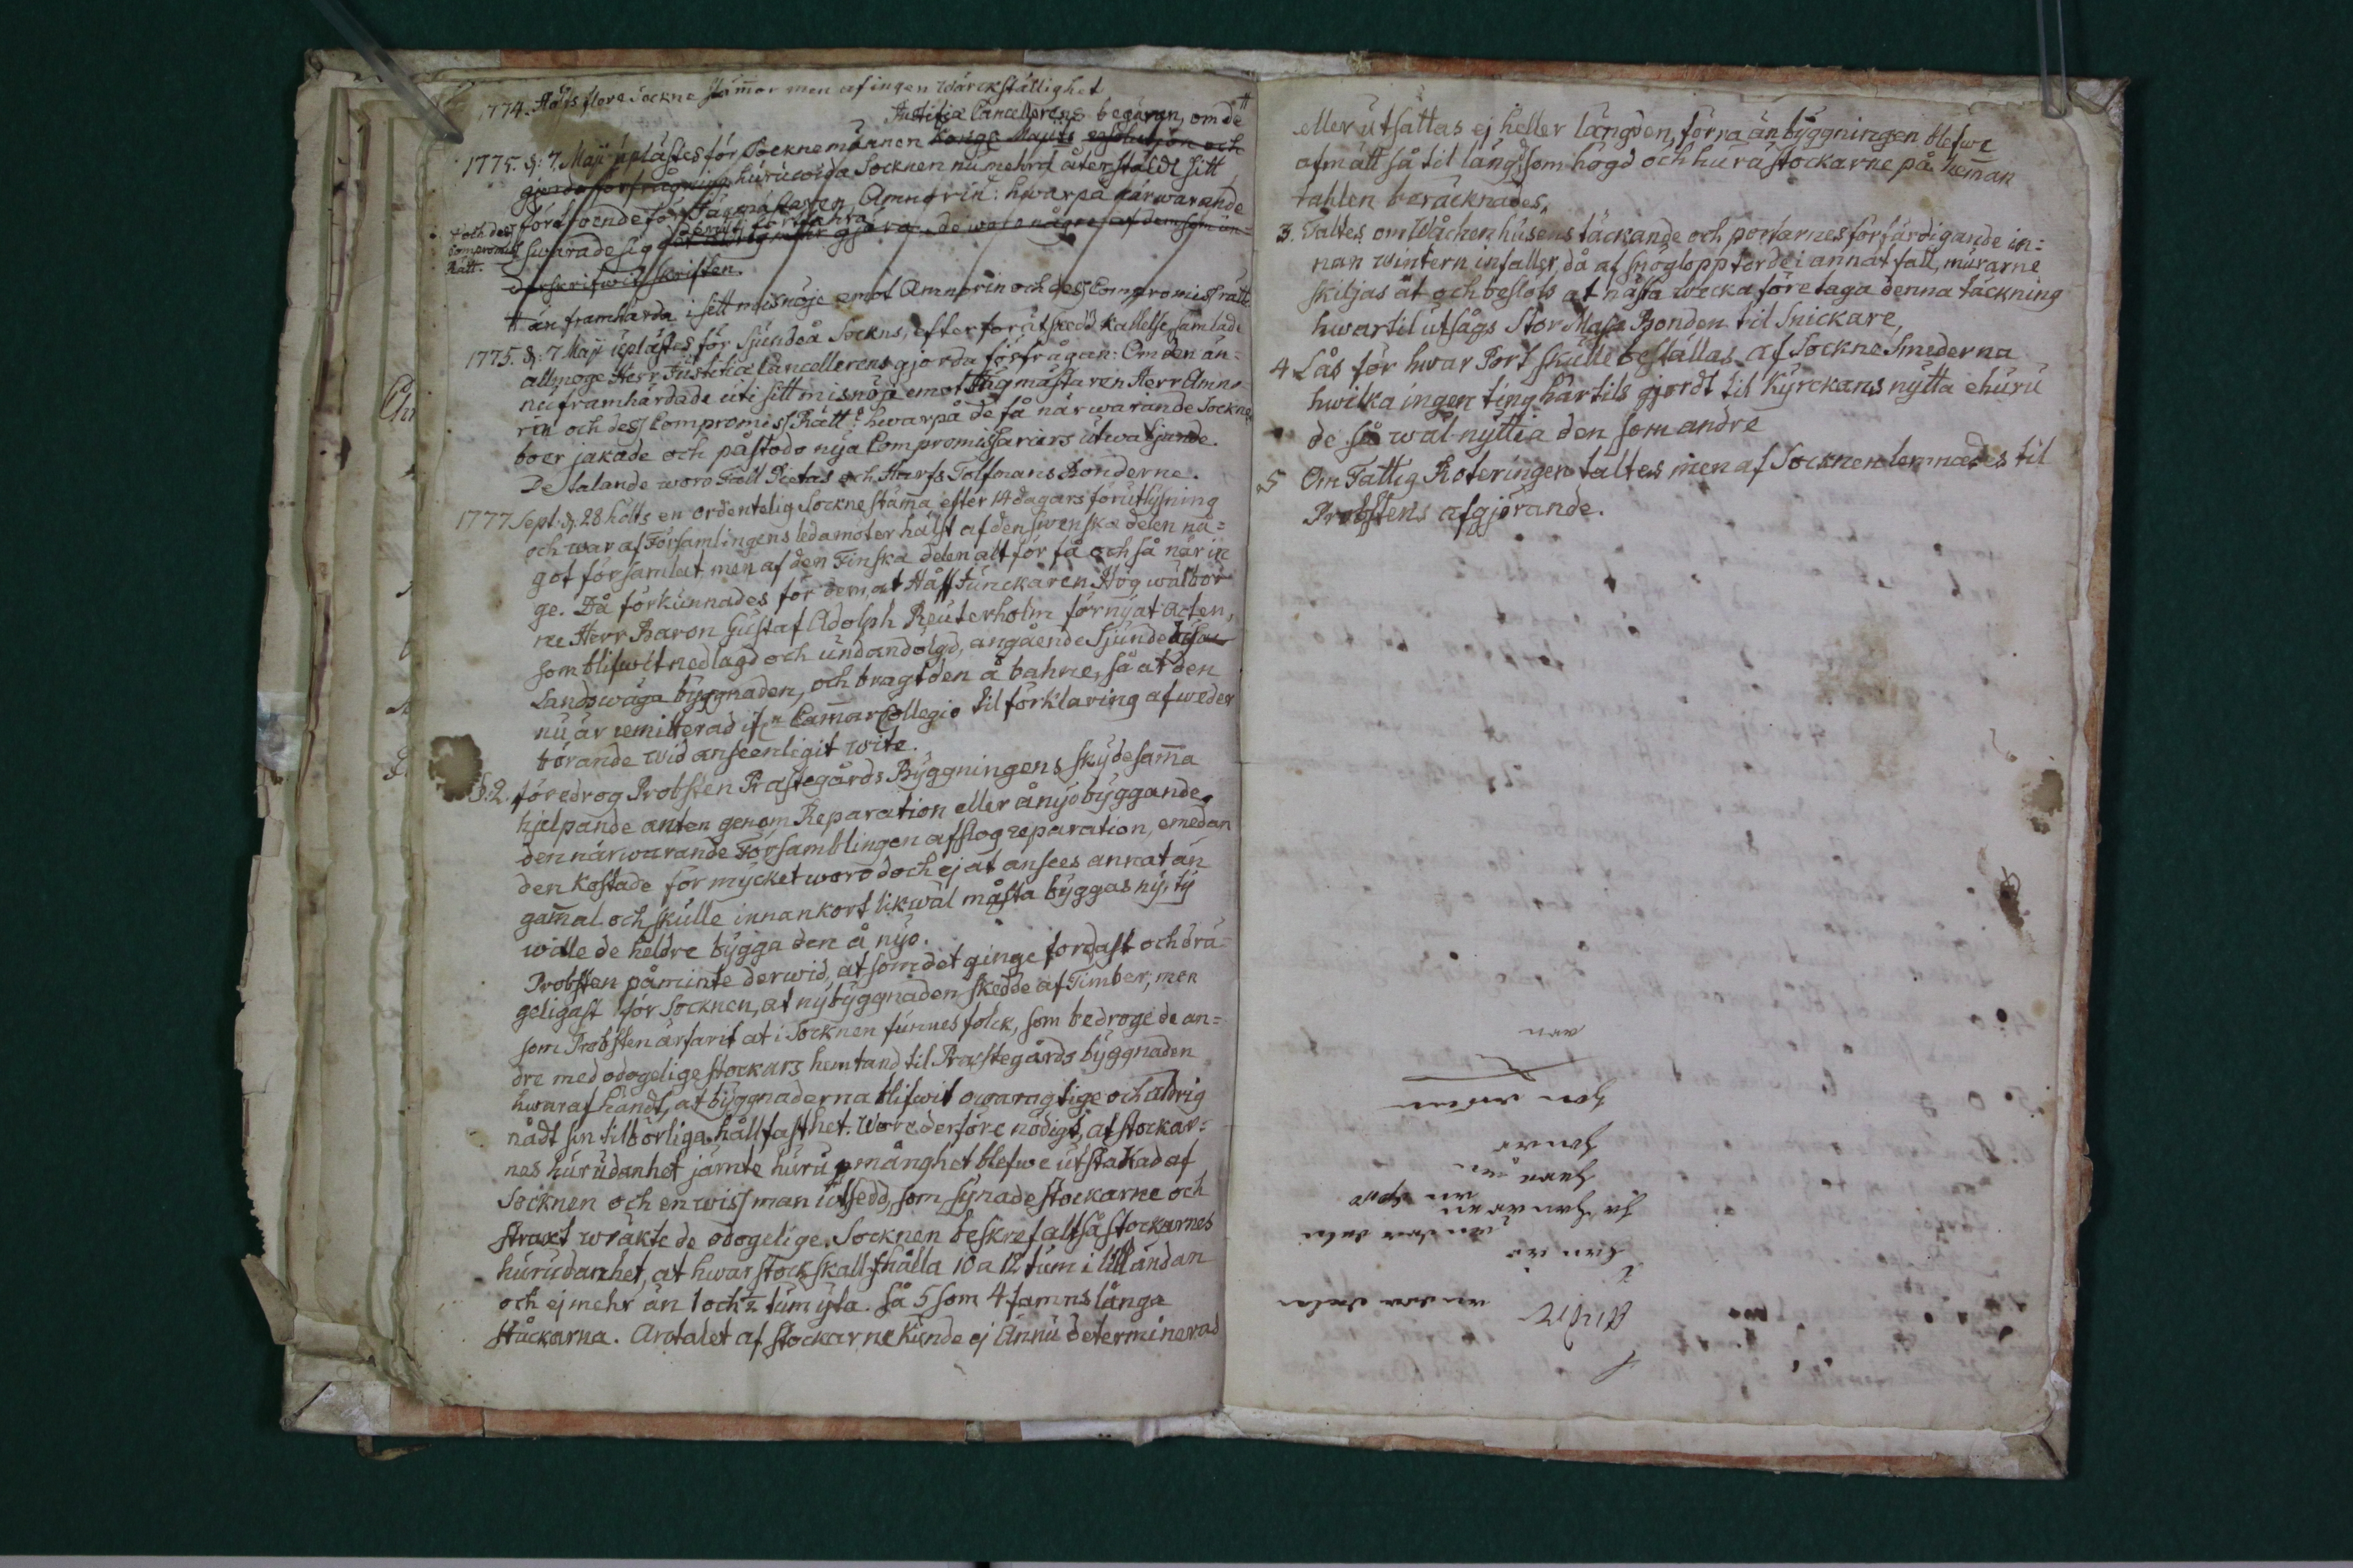 1774. Höls flere Sockne stämmor men af ingen wärckställighet
Justitiæ Cancellerens begäran, om de
1775. d: 7 Maji uplästes för Socknemännen Kongl Maj:ts resolution och
gjorda förfrågning huruwida Socknen numehra återstäldt sitt
förtroende för Jägmästaren Amnorin: hwarpå närwarande
swarade sig
och dess
Compromiss
Rätt.
underskrifwit skriften.
än framhärda i sitt misnöje emot Amnorin och dess Compromiss rätt
1775. d: 7 Maji uplästes för Sjundeå Sockns, efter förutskedd kallelse, samlade
allmoge Herr Justitiæ Cancellerens gjorda förfrågan: Om den än-
nu framhärdade uti sitt misnöje emot Jägmästaren Herr Amno-
rin och dess Compromiss Rätt? hwarpå de få närwarande Sockne
boer jakade och påstodo nya Compromissariers utwäljande.
De talande woro Fall Pietas och Harfs Tolfmans Bonderne.
1777 Sept. d. 28 hölts en ordentelig Sockne stämma efter 14 dagars förutlysning
och war af Församlingens ledamöter hälst af den swenska delen nå=
got församlat, men af den Finska delen alt för få och så när in
ge. Då förkunnades för dem, at Håff Junckaren Högwälbor
ne Herr Baron Gustaf Adolph Reuterholm förnyat Acten,
som blifwit nedlagd och undandölgd, angående Sjundeå
Landswäga byggnaden, och bragt den å bahne, så at den
nu är remitterad ifn Cammar Collegio til förklaring af weder
börande wid anseenligit wite.
§. 2. föredrog Probsten Prästegårds Byggningens skydesamma
hjelpande anten genom Reparation eller ånyo byggande,
den närwarande Församblingen afslog reparation, emedan
den kostade för mycket woro doch ej at ansees annat än
gammal och skulle innan kort likwäl måsta byggas ny, ty
wille de heldre bygga den å nyo.
Probsten påminte derwid, at som det ginge fordast och drä-
geligast för Socknen, at nybyggnaden skedde af Timber, men
som Probsten ärfarit at i Socknen funnes folck, som bedroge de an=
dre med odogelige stockars hemtand til Prästegårds byggnaden
hwaraf händt, at byggnaderna blifwit owaragtige och aldrig
nådt sin tilbörliga hållfasthet. Wore derföre nödigt, at stockar=
nas hurudanhet jämte huru månghet blefwe utstakad af
Socknen och en wiss man utsedd, som synade stockarne och
straxt wräkte de odogelige. Socknen beskref altså stockarnes
hurudanhet, at hwar stock skall hålla 10 a 12 tum i lilländan
och ej mehr än 1 och ½ tum yta. Så 5 som 4 famns långa
ståckarna. Antalet af stockarne kunde ej ännu determinerad
eller utsättas ej heller längden, förr än byggningen blefwe
afmätt så til längd som högd och huru stockarne på hemman
tahlen beräcknades.
3. Taltes om Wåckenhusens täckande och portarnes förfärdigande in=
nan wintern infaller, då af snöglopp torde i annat fall, murarne
skiljas åt och beslöts at nästa wecka företaga denna täckning
hwartil utsågs Stor Masa Bonden til Snickare,
4 Lås för hwar Port skulle beställas af Sockne Smederna
hwilka ingen ting härtils gjordt til Kyrckans nytta ehuru
de så wäl nyttia den som andre
5 Om Fattig Roteringen taltes men af Socknen lemnades til
Probstens afgjörande.